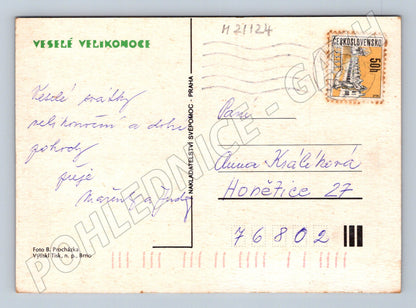 M 21124
VESELÉ VELIKONOCE
ČESKOSLOVENSKO
50h
Veselé svátky
velikonoční a dobré
pohody
přeje
Paní
Anna Králíková
Honěřice 27
76802
NAKLADATELSTVÍ SVÉPOMOC - PRAHA
Foto B. Procházka
Vytiskl Tisk, n. p., Brno
POHLEDNICE - GASH